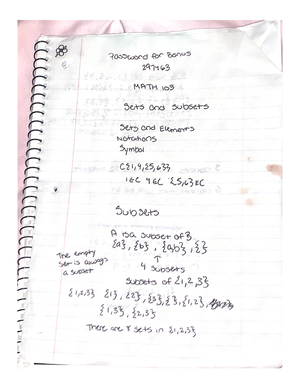 Password for Bonus
297463
MATH 103
Sets and Subsets
Sets and Elements
Notations
Symbol
C{1,4,{5,6}}
1∈C 4∈C {5,6}∈C
Subsets
A is a subset of B
{a}, {b}, {a,b}, { }
4 subsets
The empty
set is always
a subset
Subsets of {1,2,3}
{1,2,3} {1} {2}, {3}, { }, {1,2},
{1,3}, {2,3}
There are 8 sets in {1,2,3}